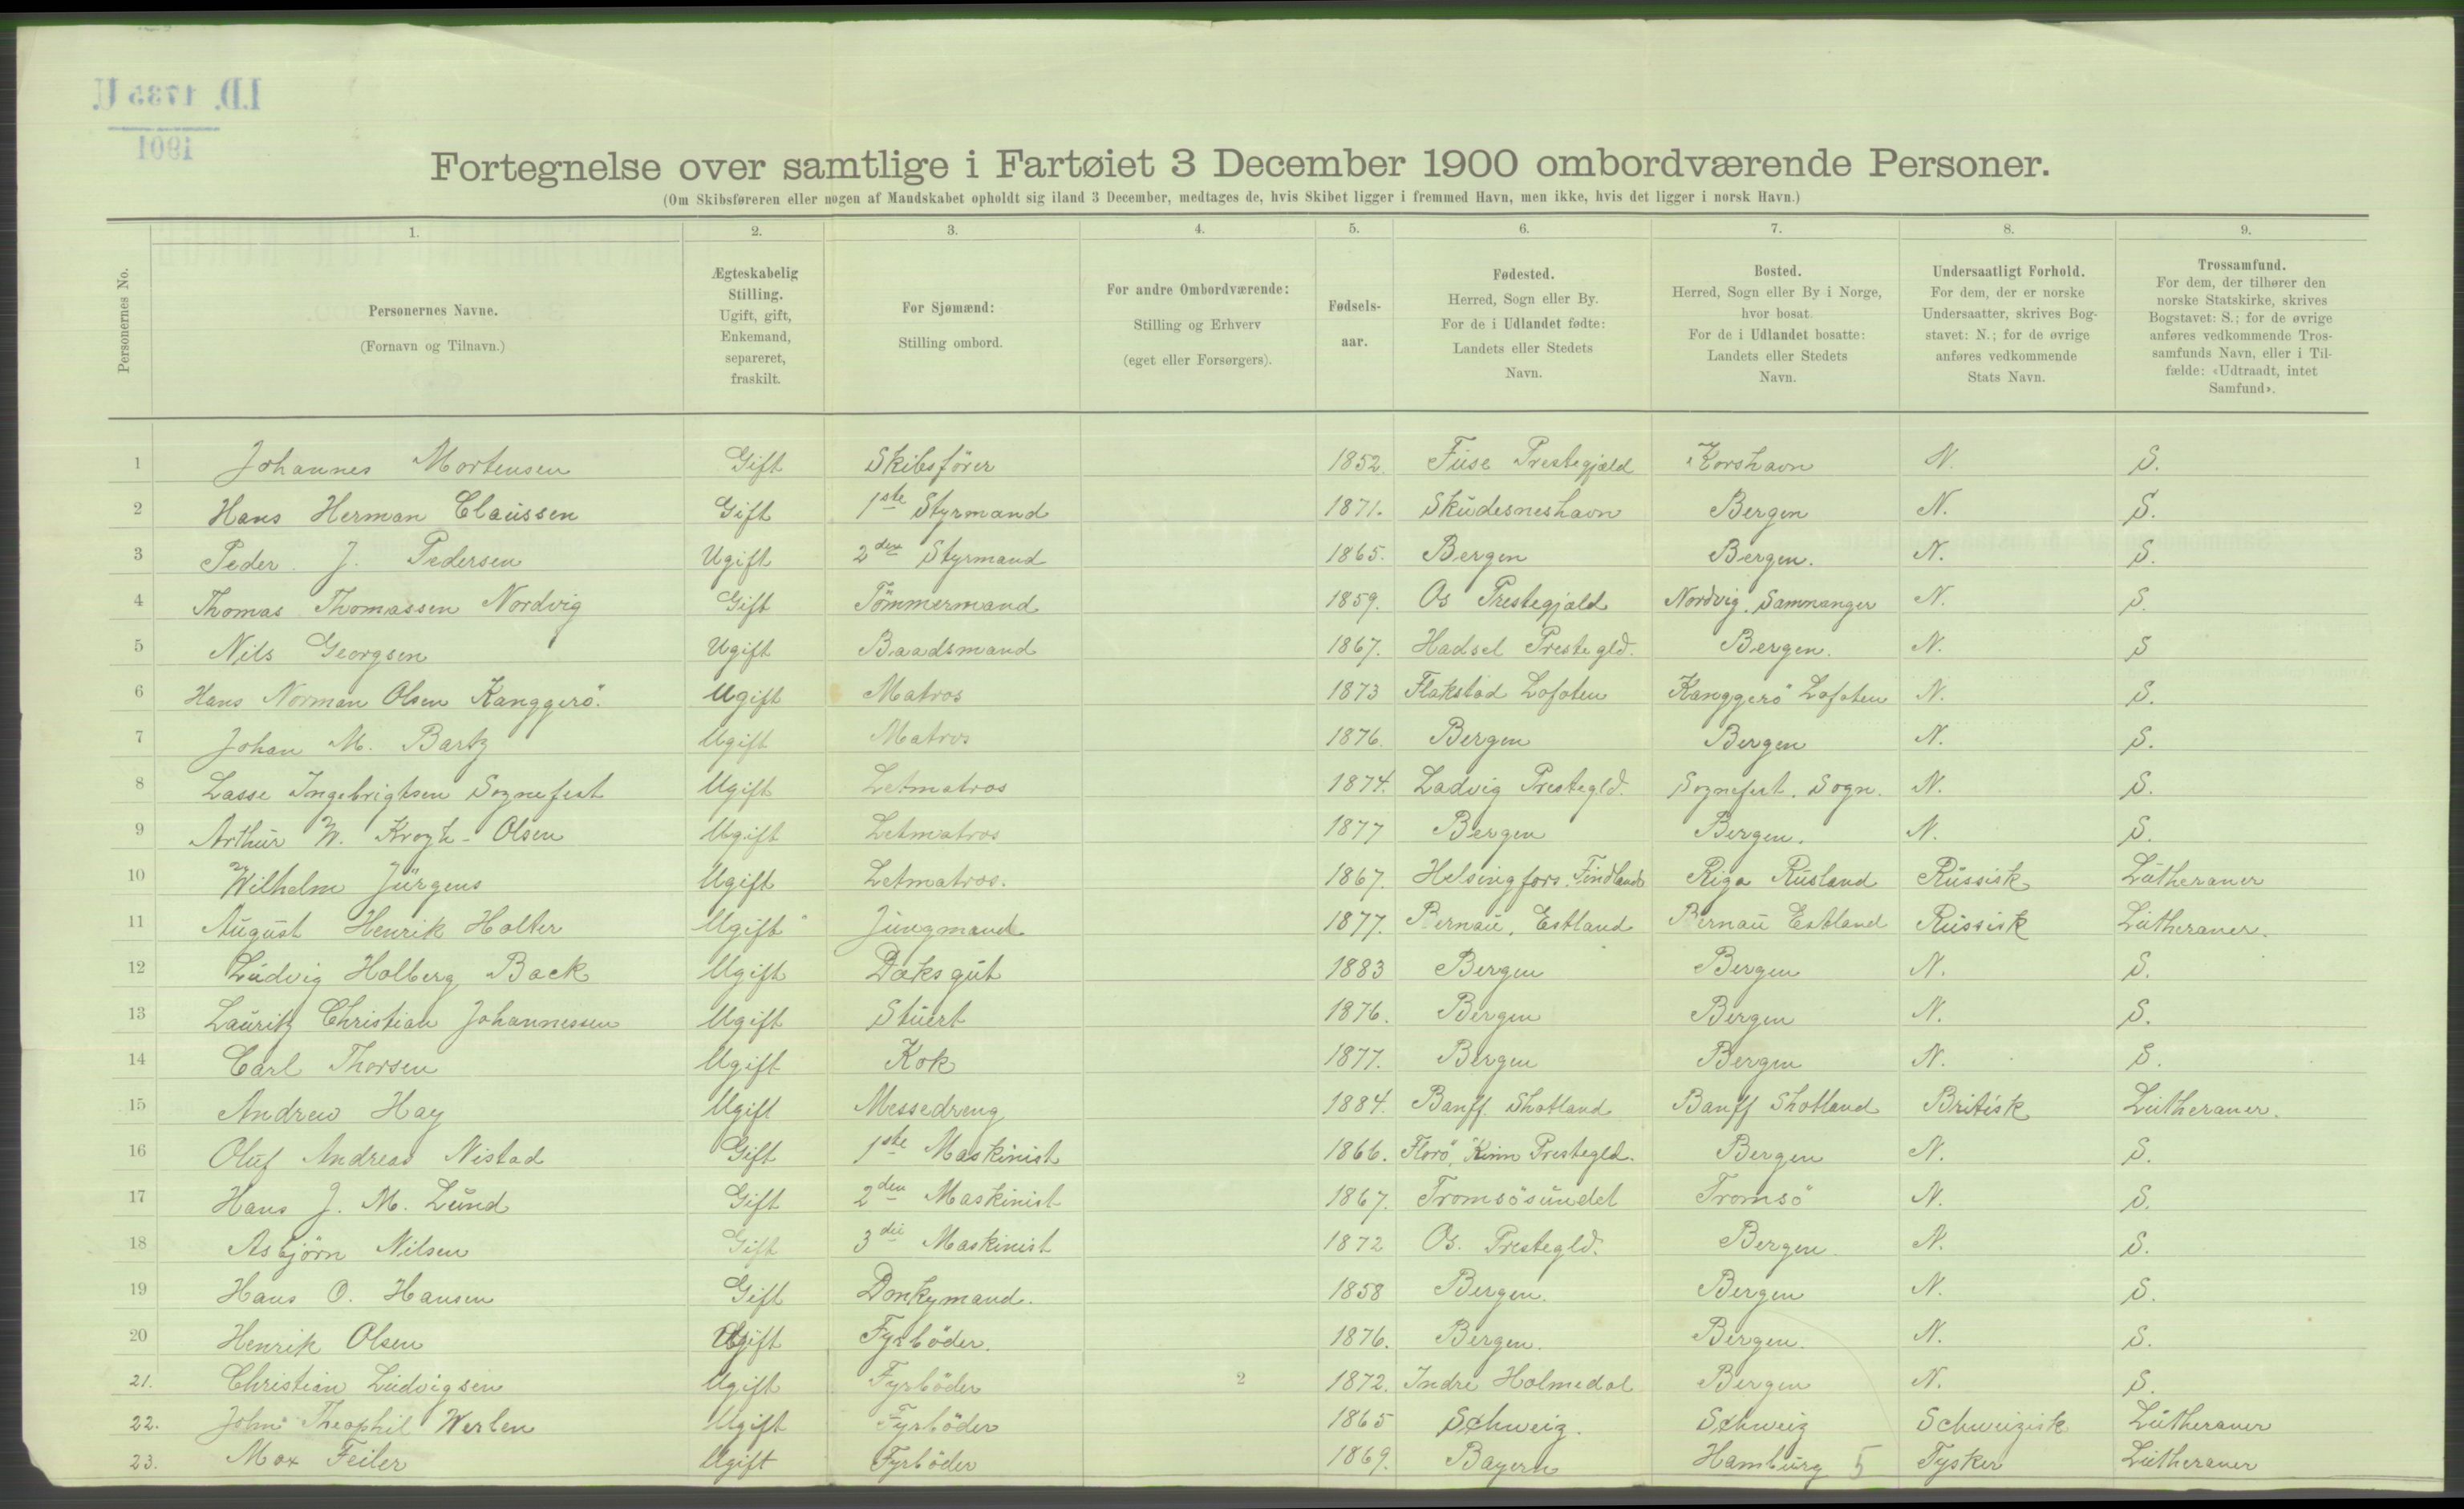 I.D. 1735 U.
1901
Fortegnelse over samtlige i Fartøiet 3 December 1900 ombordværende Personer.
(Om Skibsføreren eller nogen af Mandskabet opholdt sig iland 3 December, medtages de, hvis Skibet ligger i fremmed Havn, men ikke, hvis det ligger i norsk Havn.)
Personernes No.
1. 2. 3. 4. 5. 6. 7. 8. 9.
Personernes Navne.
(Fornavn og Tilnavn.)
Ægteskabelig
Stilling.
Ugift, gift,
Enkemand,
separeret,
fraskilt.
For Sjømænd:
Stilling ombord.
For andre Ombordværende:
Stilling og Erhverv
(eget eller Forsørgers).
Fødsels-
aar.
Fødested.
Herred, Sogn eller By.
For de i Udlandet fødte:
Landets eller Stedets
Navn.
Bosted.
Herred, Sogn eller By i Norge,
hvor bosat.
For de i Udlandet bosatte:
Landets eller Stedets
Navn.
Undersaatligt Forhold.
For dem, der er norske
Undersaatter, skrives Bog-
stavet: N.; for de øvrige
anføres vedkommende
Stats Navn.
Trossamfund.
For dem, der tilhører den
norske Statskirke, skrives
Bogstavet: S.; for de øvrige
anføres vedkommende Tros-
samfunds Navn, eller i Til-
fælde: «Udtraadt, intet
Samfund».
1 Johannes Mortensen Gift Skibsförer 1852. Fuse Prestegjæld Korshavn N. S.
2 Hans Herman Claussen Gift 1ste Styrmand 1871. Skudesneshavn Bergen N. S.
3 Peder J. Pedersen Ugift 2den Styrmand 1865. Bergen Bergen. N. S.
4 Thomas Thomassen Nordvig Gift Tömmermand 1859. Os Prestegjæld Nordvig. Samnanger N. S.
5 Nils Georgsen Ugift Baadsmand 1867. Hadsel Prestegld. Bergen. N. S
6 Hans Norman Olsen Kanggerö. Ugift Matros 1873 Flakstad Lofoten Kanggerö Lofoten N. S.
7 Johan M. Bartz Ugift Matros 1876. Bergen Bergen N. S.
8 Lasse Ingebrigtsen Sognefest Ugift Letmatros 1874. Ladvig Prestegld. Sognefest. Sogn. N. S.
9 Arthur W. Krogh-Olsen Ugift Letmatros 1877 Bergen Bergen. N. S.
10 Wilhelm Jürgens Ugift Letmatros. 1867. Helsingfors. Findland Riga Rusland Russisk Lutheraner
11 August Henrik Holter Ugift Jungmand 1877. Pernau, Estland Pernau Estland Russisk Lutheraner.
12 Ludvig Holberg Back Ugift Dæksgut 1883 Bergen Bergen N. S.
13 Lauritz Christian Johannessen Ugift Stuert 1876. Bergen Bergen N. S.
14 Carl Thorsen Ugift Kok 1877. Bergen Bergen N. S.
15 Andrew Hay Ugift Messedreng 1884. Banff Skotland Banff Skotland Britisk Lutheraner.
16 Oluf Andreas Nistad Gift 1ste Maskinist 1866. Florö, Kinn Prestegld. Bergen N. S.
17 Hans J. M. Lund Gift 2den Maskinist 1867. Tromsösundet Tromsö N. S.
18 Asbjörn Nilsen Gift 3die Maskinist 1872 Os. Prestegld. Bergen N. S.
19 Hans O. Hansen Gift Donkymand. 1858 Bergen. Bergen N. S.
20 Henrik Olsen Ugift Fyrböder. 1876. Bergen. Bergen. N. S.
21. Christian Ludvigsen Ugift Fyrböder 2 1872. Indre Holmedal Bergen N. S.
22. John Theophil Werlen Ugift Fyrböder 1865 Schweiz. Schweiz Schweizisk Lutheraner
23. Max Feiler Ugift Fyrböder 1869. Bayern Hamburg 5 Tysker Lutheraner